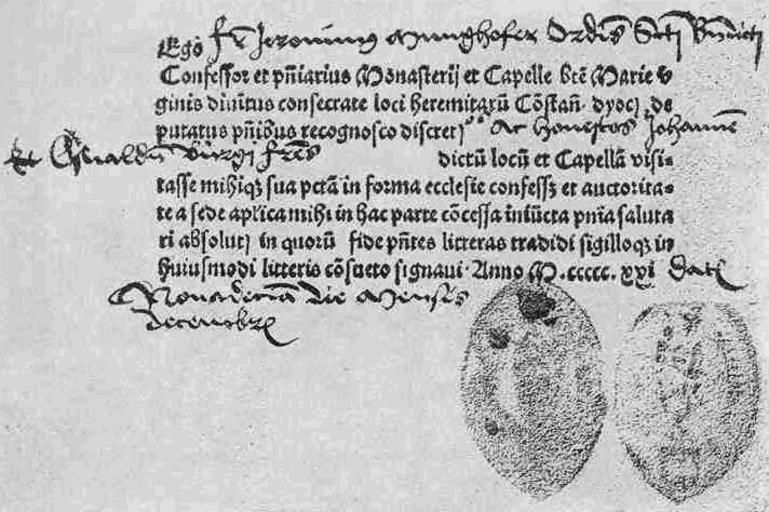 Ego fr̄ Jeronimus Munghofer Ordīs Scti Bn̄dicti
Confessor et pn̄iarius Monasterij et Capelle btē Marie v
ginis diuitus consecrate loci heremitarū Cōstan̄· dyocꝭ de
putatus pn̄ibus recognosco discretꝭ Ac honestos Johannē
Et Oswaldū Bürgi fres̄ dictū locū et Capellā visi⸗
tasse mihiqꝫ sua pctā in forma ecclesie confessꝭ et auctorita⸗
te a sede aplica mihi in hac parte cōcessa iniūcta pnīa saluta
ri absolutꝭ in quorū fide pn̄tes litteras tradidi sigilloqꝫ in
huiusmodi litteris cōsueto signaui· Anno M.ccccc.xxi Datꝭ
Nonadecīa die Mensis
decembrꝭ